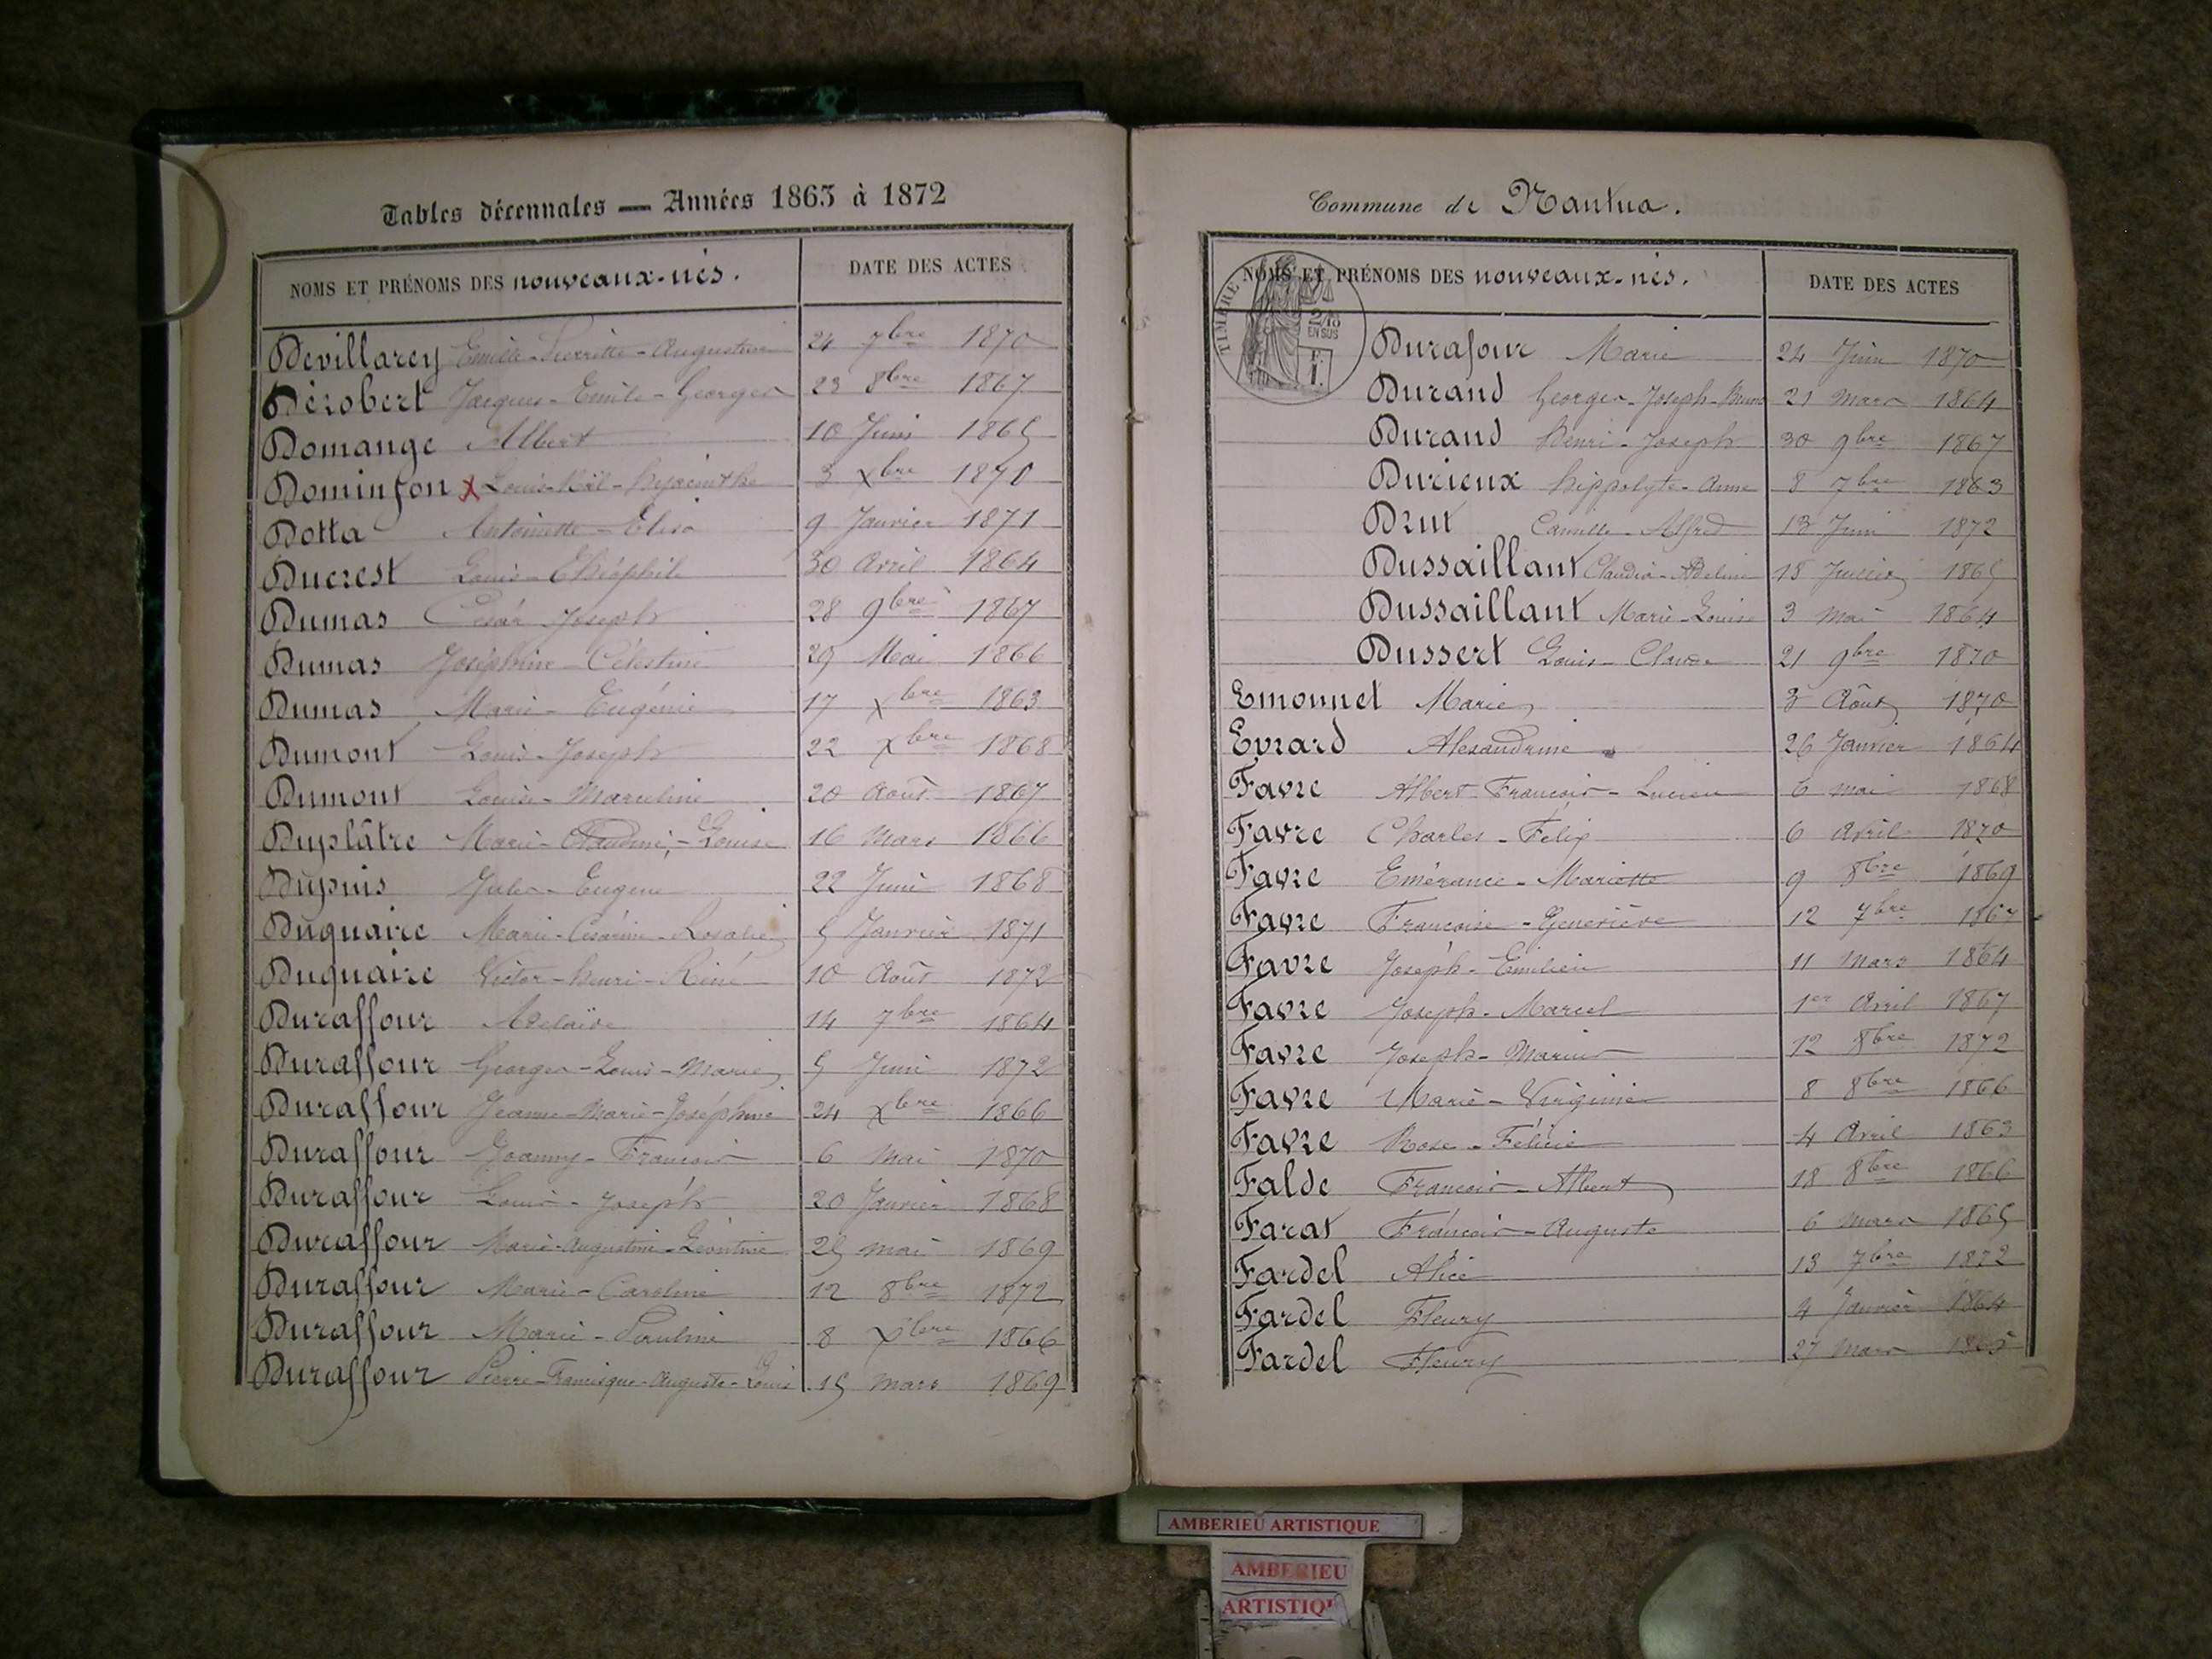 Tables décennales — Années 1863 à 1872
NOMS ET PRÉNOMS DES nouveaux-nés. DATE DES ACTES
Devillarey Emilie-Pierrette-Augustine 24 7bre 1870
Dérobert Jacques-Emile-Georges 23 8bre 1867
Domange Albert 10 Juin 1865
Dominjon x Louis-Noël-hyacinthe 3 xbre 1870
Dotta Antoinette-Elisa 9 Janvier 1871
Ducrest Louis-Théophile 30 Avril 1864
Dumas César Joseph 28 9bre 1867
Dumas Joséphine-Célestine 29 Mai 1866
Dumas Marie-Eugénie 17 xbre 1863
Dumont Louis-Joseph 22 xbre 1868
Dumont Louise-Marceline 20 Août 1867
Duplâtre Marie-Claudine-Louise 16 Mars 1866
Dupuis Jules-Eugene 22 Juin 1868
Duquaire Marie-Césarine-Rosalie 5 Janvier 1871
Duquaire Victor-henri-René 10 Août 1872
Duraffour Adelaïde 14 7bre 1864
Duraffour Georges-Louis-Marie 5 Juin 1872
Duraffour Jeanne-Marie-Joséphine 24 xbre 1866
Duraffour Joanny-François 6 Mai 1870
Duraffour Louis-Joseph 20 Janvier 1868
Duraffour Marie-Augustine-Léontine 25 mai 1869
Duraffour Marie-Caroline 12 8bre 1872
Duraffour Marie-Pauline 8 xbre 1866
Duraffour Pierre-Francisque-Auguste-Louis 15 mars 1869
Commune de Nantua.
TIMBRE
2/10
EN SUS
NOMS ET PRÉNOMS DES nouveaux-nés. DATE DES ACTES
Durafour Marie 24 Juin 1870
Durand Georges-Joseph 21 mars 1864
Durand henri-Joseph 30 9bre 1867
Durieux hippolyte-Anne 8 7bre 1863
Drut Camille-Alfred 13 Juin 1872
Dussaillant Claudia-Adeline 18 1865
Dussaillant Marie-Louise 3 mai 1864
Dussert Louis-Claude 21 9bre 1870
Emonnet Marie 3 Août 1870
Evrard Alexandrine 26 Janvier 1864
Favre Albert-François-Lucien 6 mai 1868
Favre Charles-Félix 6 Avril 1870
Favre Emérance-Mariette 9 8bre 1869
Favre Françoise-Geneviève 12 7bre 1867
Favre Joseph-Emilien 11 Mars 1864
Favre Joseph-Marcel 1er Avril 1867
Favre Joseph-Marius 12 8bre 1872
Favre Marie-Virginie 8 8bre 1866
Favre Rose-Félicie 4 Avril 1863
Falde François-Albert 18 8bre 1866
Farat François-Auguste 6 mars 1865
Fardel Alice 13 7bre 1872
Fardel Fleury 4 Janvier 1864
Fardel Fleury 27 Mars 1865
AMBERIEU ARTISTIQUE
AMBERIEU
ARTISTIQ